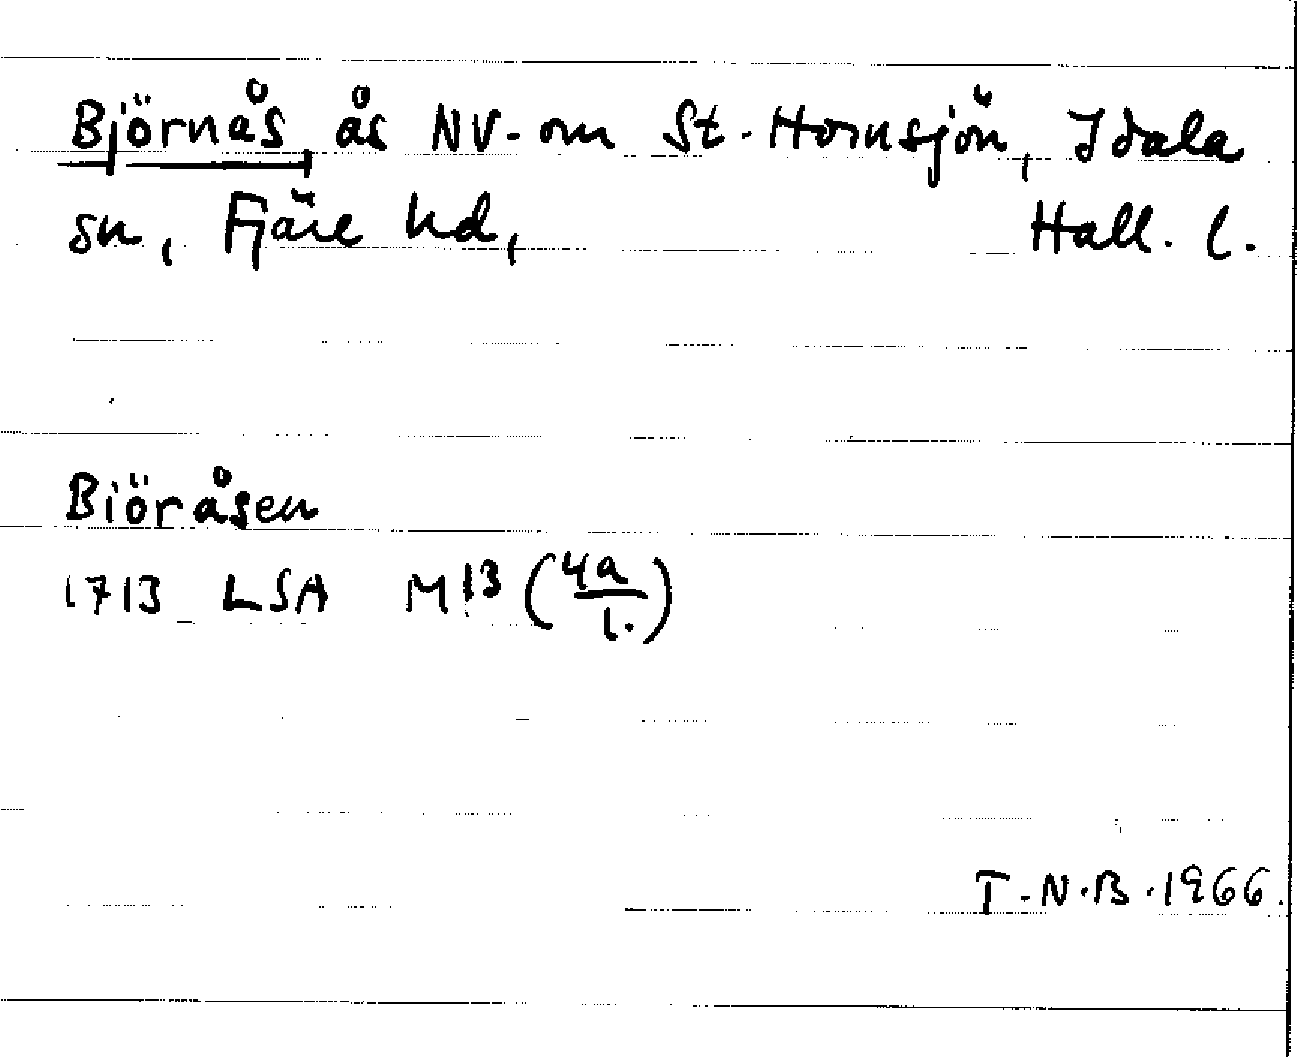 Björnås, ås NV. om St. Hornsjön, Idala
sn, Fjäre hd, Hall. l.
Biöråsen
1713 LSA M13 (4a/1.)
T.N.B. 1966.